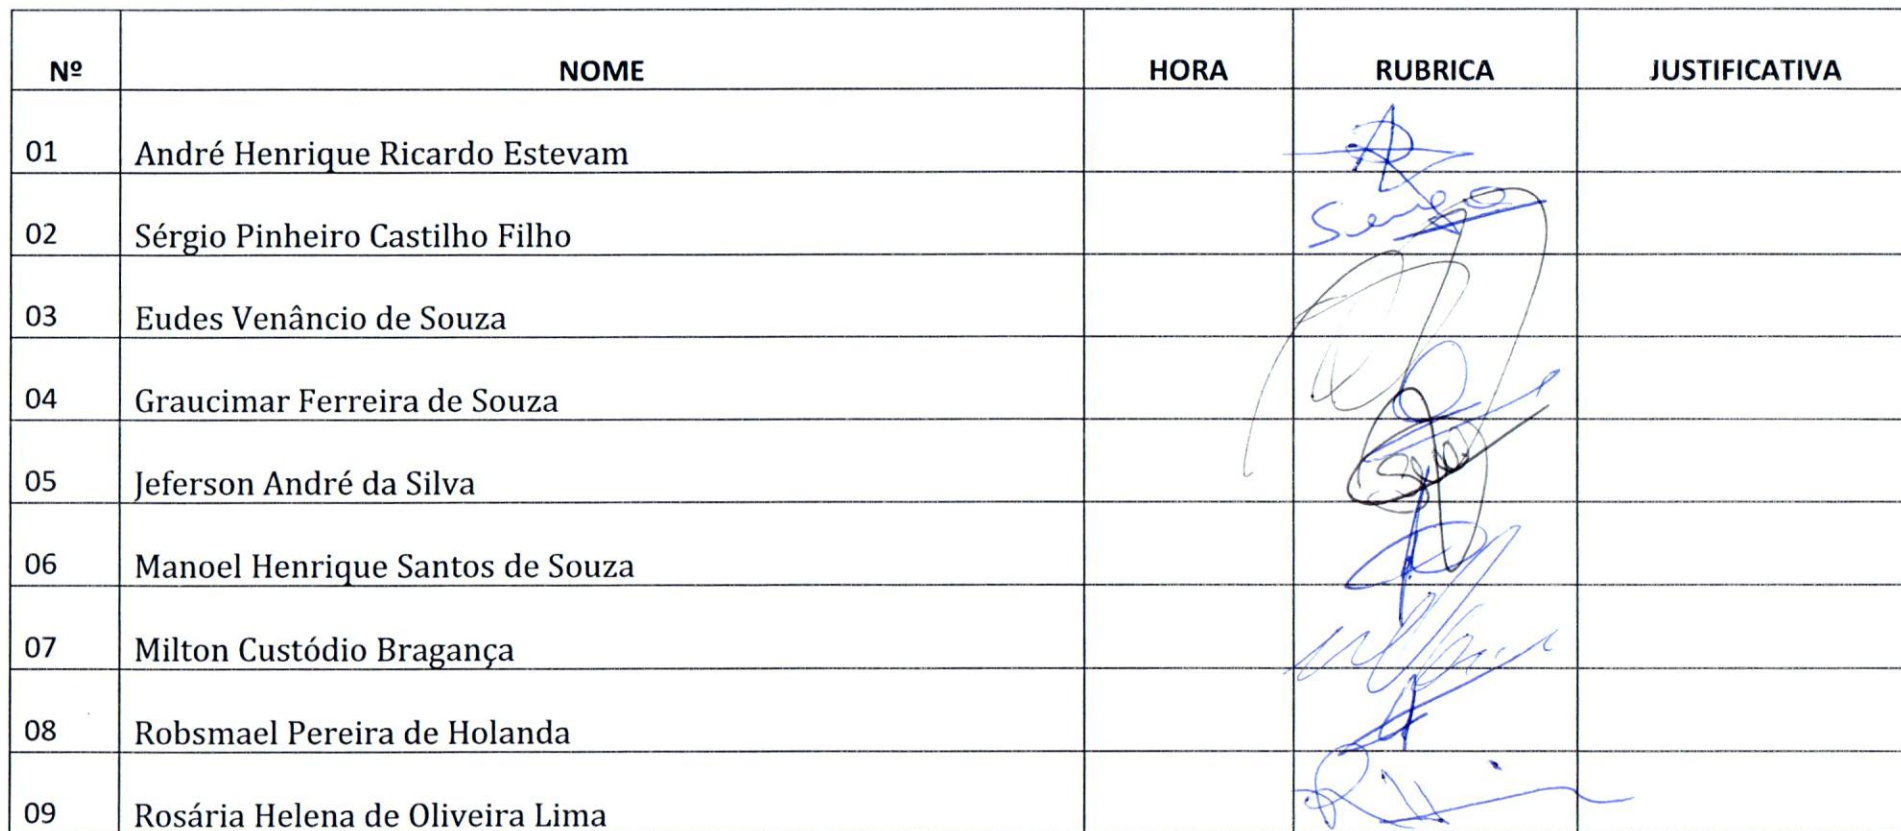 Nº NOME HORA RUBRICA JUSTIFICATIVA
01 André Henrique Ricardo Estevam
02 Sérgio Pinheiro Castilho Filho
03 Eudes Venâncio de Souza
04 Graucimar Ferreira de Souza
05 Jeferson André da Silva
06 Manoel Henrique Santos de Souza
07 Milton Custódio Bragança
08 Robsmael Pereira de Holanda
09 Rosária Helena de Oliveira Lima